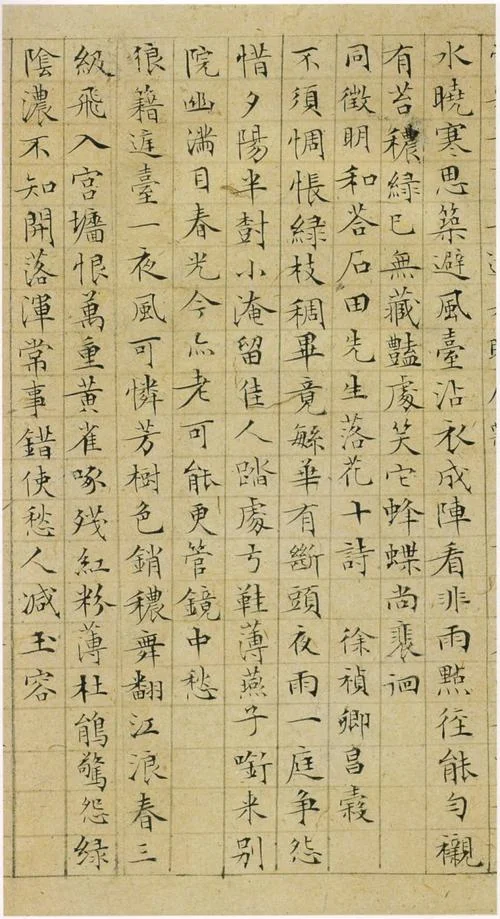 水曉寒思築避風臺沾衣成陣看非雨點徑能勻襯
有苔穠綠已無藏豔處笑它蜂蝶尚裴迴
同徵明和荅石田先生落花十詩　徐禎卿昌穀
不須惆悵綠枝稠畢竟緐華有斷頭夜雨一庭爭怨
惜夕陽半樹小淹留佳人踏處弓鞋薄燕子銜來別
院幽滿目春光今亦老可能更管鏡中愁
狼籍庭臺一夜風可憐芳樹色銷穠舞翻江浪春三
級飛入宮牆恨萬重黃雀啄殘紅粉薄杜鵑驚怨綠
陰濃不知開落渾常事錯使愁人減玉容